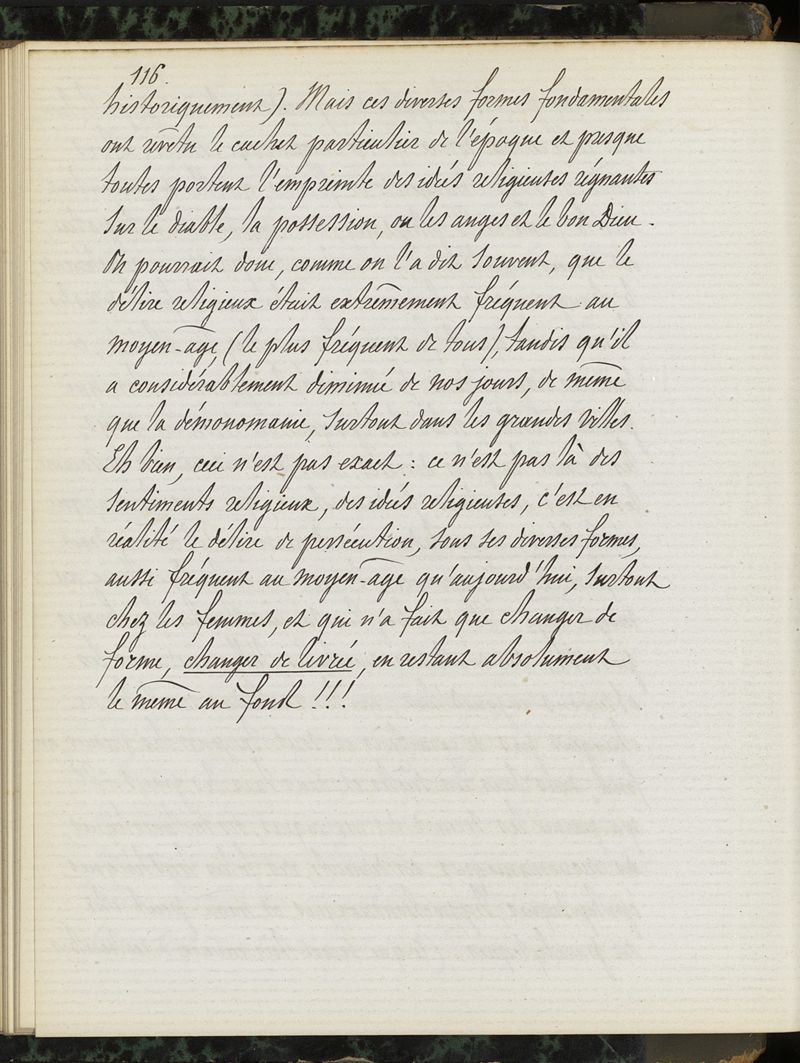 116.
historiquement). Mais ces diverses formes fondamentales
ont revêtu le cachet particulier de l'époque et presque
toutes portent l'empreinte des idées religieuses régnantes
sur le diable, la possession, ou les anges et le bon Dieu.
On pourrait donc, comme on l'a dit souvent, que le
délire religieux était extrêmement fréquent au
moyen-âge, (le plus fréquent de tous), tandis qu'il
a considérablement diminué de nos jours, de même
que la démonomanie, surtout dans les grandes villes.
Eh bien, ceci n'est pas exact : ce n'est pas là des
sentiments religieux, des idées religieuses, c'est en
réalité le délire de persécution, sous ses diverses formes,
aussi fréquent au moyen-âge qu'aujourd'hui, surtout
chez les femmes, et qui n'a fait que changer de
forme, changer de livrée, en restant absolument
le même au fond !!!